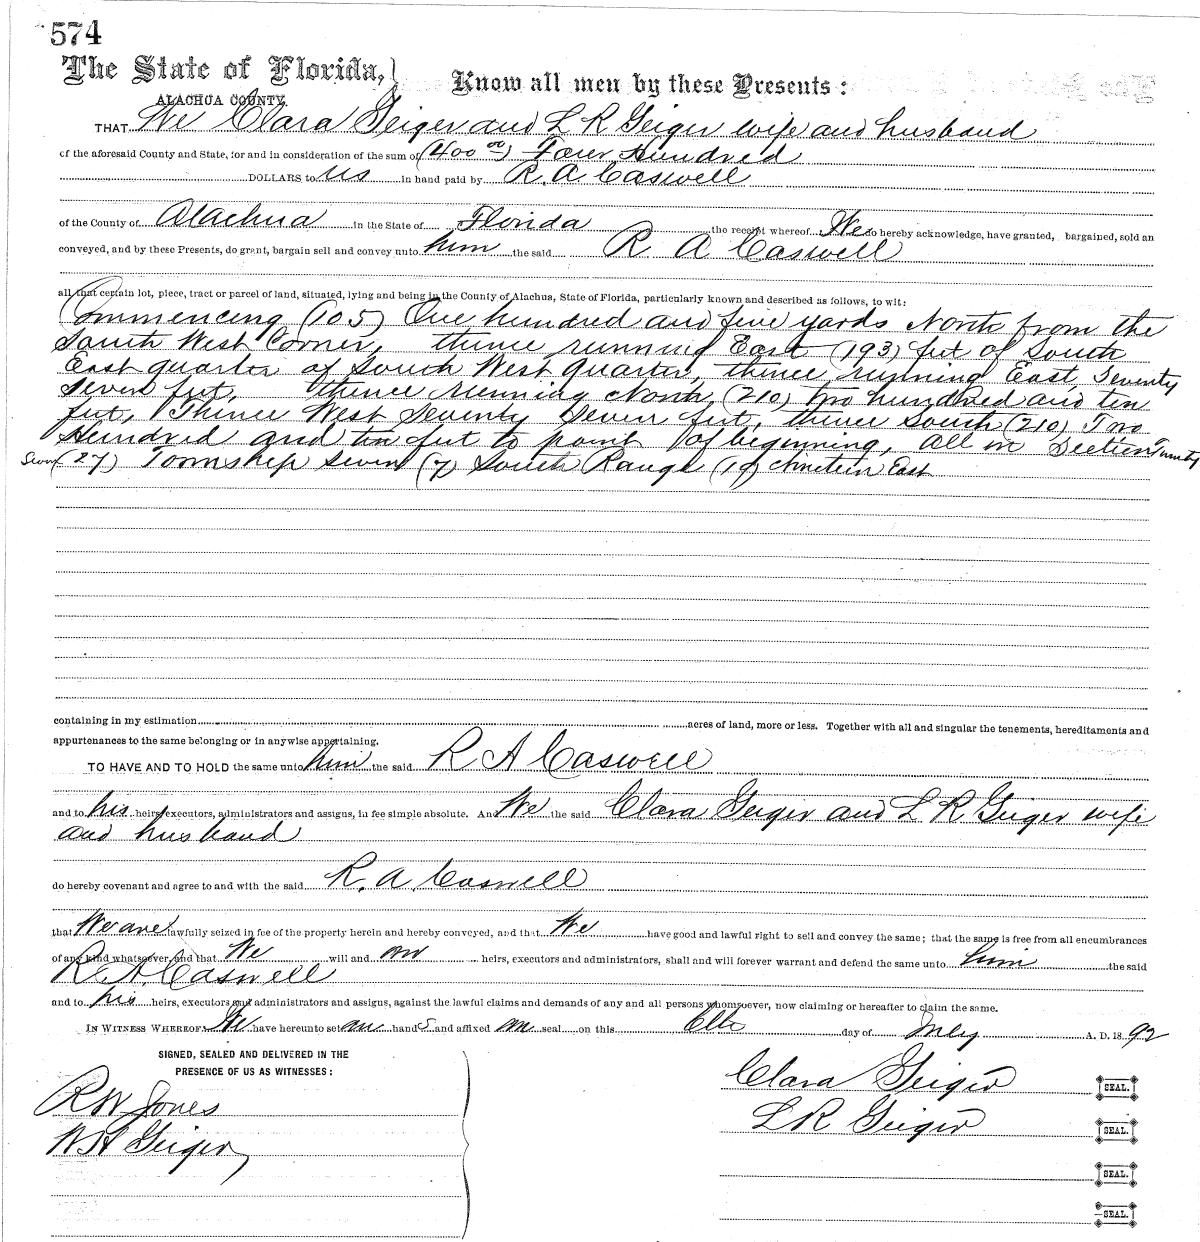 574
The State of Florida,
ALACHUA COUNTY.
Know all men by these Presents:
THAT We Clara Geiger and L R Geiger wife and husband
of the aforesaid County and State, for and in consideration of the sum of (400 00) Four Hundred
DOLLARS to us in hand paid by R. A Caswell
of the County of Alachua in the State of Florida the receipt whereof We do hereby acknowledge, have granted, bargained, sold an
conveyed, and by these Presents, do grant, bargain sell and convey unto him the said R A Caswell
all that certain lot, piece, tract or parcel of land, situated, lying and being in the County of Alachus, State of Florida, particularly known and described as follows, to wit:
Commencing (105) One hundred and five yards North from the
South West Corner, thence running East (193) feet of South
East quarter of South West quarter, thence running East Seventy
Seven feet, thence running North (210) two hundred and ten
feet, Thence West Seventy Seven feet, thence South (210) Two
Hundred and ten feet to point of beginning, All in Section Twenty
Seven (27) Township Seven (7) South Range (19) Nineteen East
containing in my estimation acres of land, more or less. Together with all and singular the tenements, hereditaments and
appurtenances to the same belonging or in anywise appertaining.
TO HAVE AND TO HOLD the same unto him the said R A Caswell
and to his heirs, executors, administrators and assigus, in fee simple absolute. And We the said Clara Geiger and L R Geiger wife
and husband
do hereby covenant and agree to and with the said R. A. Caswell
that We are lawfully seized in fee of the property herein and hereby conveyed, and that We have good and lawful right to sell and convey the same; that the same is free from all encumbrances
of any kind whatsoever, and that We will and our heirs, executors and administrators, shall and will forever warrant and defend the same unto him the said
R. A. Caswell
and to his heirs, executors and administrators and assigus, against the lawful claims and demands of any and all persons whomsoever, now claiming or hereafter to claim the same.
IN WITNESS WHEREOF, We have hereunto set our hands and affixed our seal on this day of July A. D. 1892
SIGNED, SEALED AND DELIVERED IN THE
PRESENCE OF US AS WITNESSES:
Clara Geiger SEAL.
R W Jones
L R Geiger SEAL.
W H Geiger
SEAL.
SEAL.